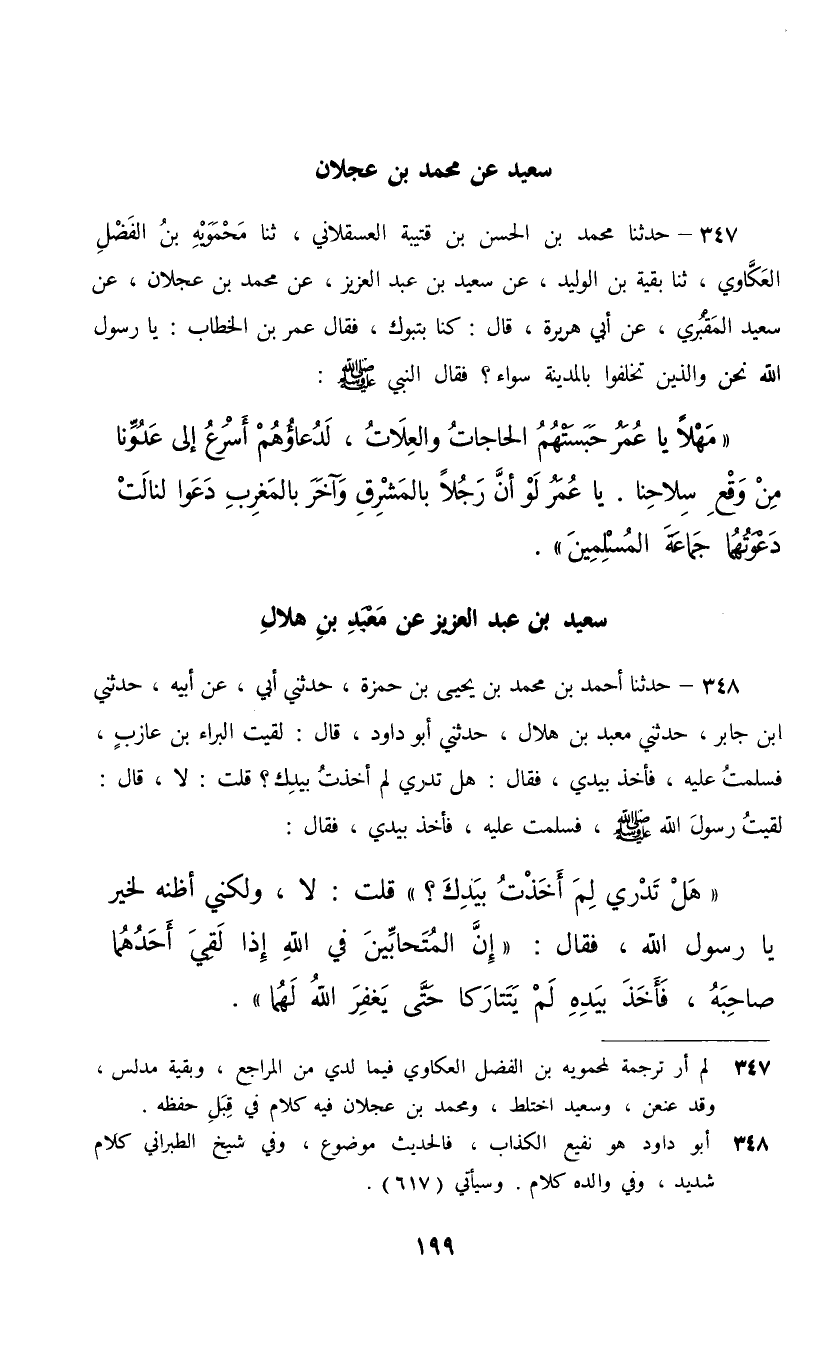 سعيد عن محمد بن عجلان
٣٤٧ – حدثنا محمد بن الحسن بن قتيبة العسقلاني ، ثنا مَحْمَوَيْهِ بنُ الفَضْلِ
العَكَّاوي ، ثنا بقية بن الوليد ، عن سعيد بن عبد العزيز ، عن محمد بن عجلان ، عن
سعيد المَقْبُري ، عن أبي هريرة ، قال : كنا بتبوك ، فقال عمر بن الخطاب : يا رسول
الله نحن والذين تخلفوا بالمدينة سواء ؟ فقال النبي ﷺ :
« مَهْلاً يا عُمَرُ حَبَسَتْهُمُ الحاجاتُ والعِلَاتُ ، لَدُعاؤُهُمْ أَسْرَعُ إلى عَدُوِّنا
مِنْ وَقْعِ سِلاحِنا . يا عُمَرُ لَوْ أنَّ رَجُلاً بالمَشْرِقِ وَآخَرَ بالمَغرِبِ دَعَوا لنالَتْ
دَعْوَتُهُما جَماعَةَ المُسْلِمِينَ » .
سعيد بن عبد العزيز عن مَعْبَدِ بنِ هلالِ
٣٤٨ – حدثنا أحمد بن محمد بن يحيى بن حمزة ، حدثني أبي ، عن أبيه ، حدثني
ابن جابر ، حدثني معبد بن هلال ، حدثني أبو داود ، قال : لقيت البراء بن عازبٍ ،
فسلمتُ عليه ، فأخذ بيدي ، فقال : هل تدري لم أخذتُ بيدِك ؟ قلت : لا ، قال :
لقيتُ رسولَ الله ﷺ ، فسلمت عليه ، فأخذ بيدي ، فقال :
« هَلْ تَدْري لِمَ أَخَذْتُ بيَدِكَ ؟ » قلت : لا ، ولكني أظنه لخير
يا رسول الله ، فقال : « إنَّ المُتَحابِّينَ في اللهِ إذا لَقِيَ أَحَدُهُما
صاحِبَهُ ، فَأَخَذَ بيَدِهِ لَمْ يَتَتارَكا حَتَّى يَغفِرَ اللهُ لَهُما » .
٣٤٧ لم أر ترجمة لمحمويه بن الفضل العكاوي فيما لدي من المراجع ، وبقية مدلس ،
وقد عنعن ، وسعيد اختلط ، ومحمد بن عجلان فيه كلام في قِبَلِ حفظه .
٣٤٨ أبو داود هو نفيع الكذاب ، فالحديث موضوع ، وفي شيخ الطبراني كلام
شديد ، وفي والده كلام . وسيأتي ( ٦١٧ ) .
١٩٩